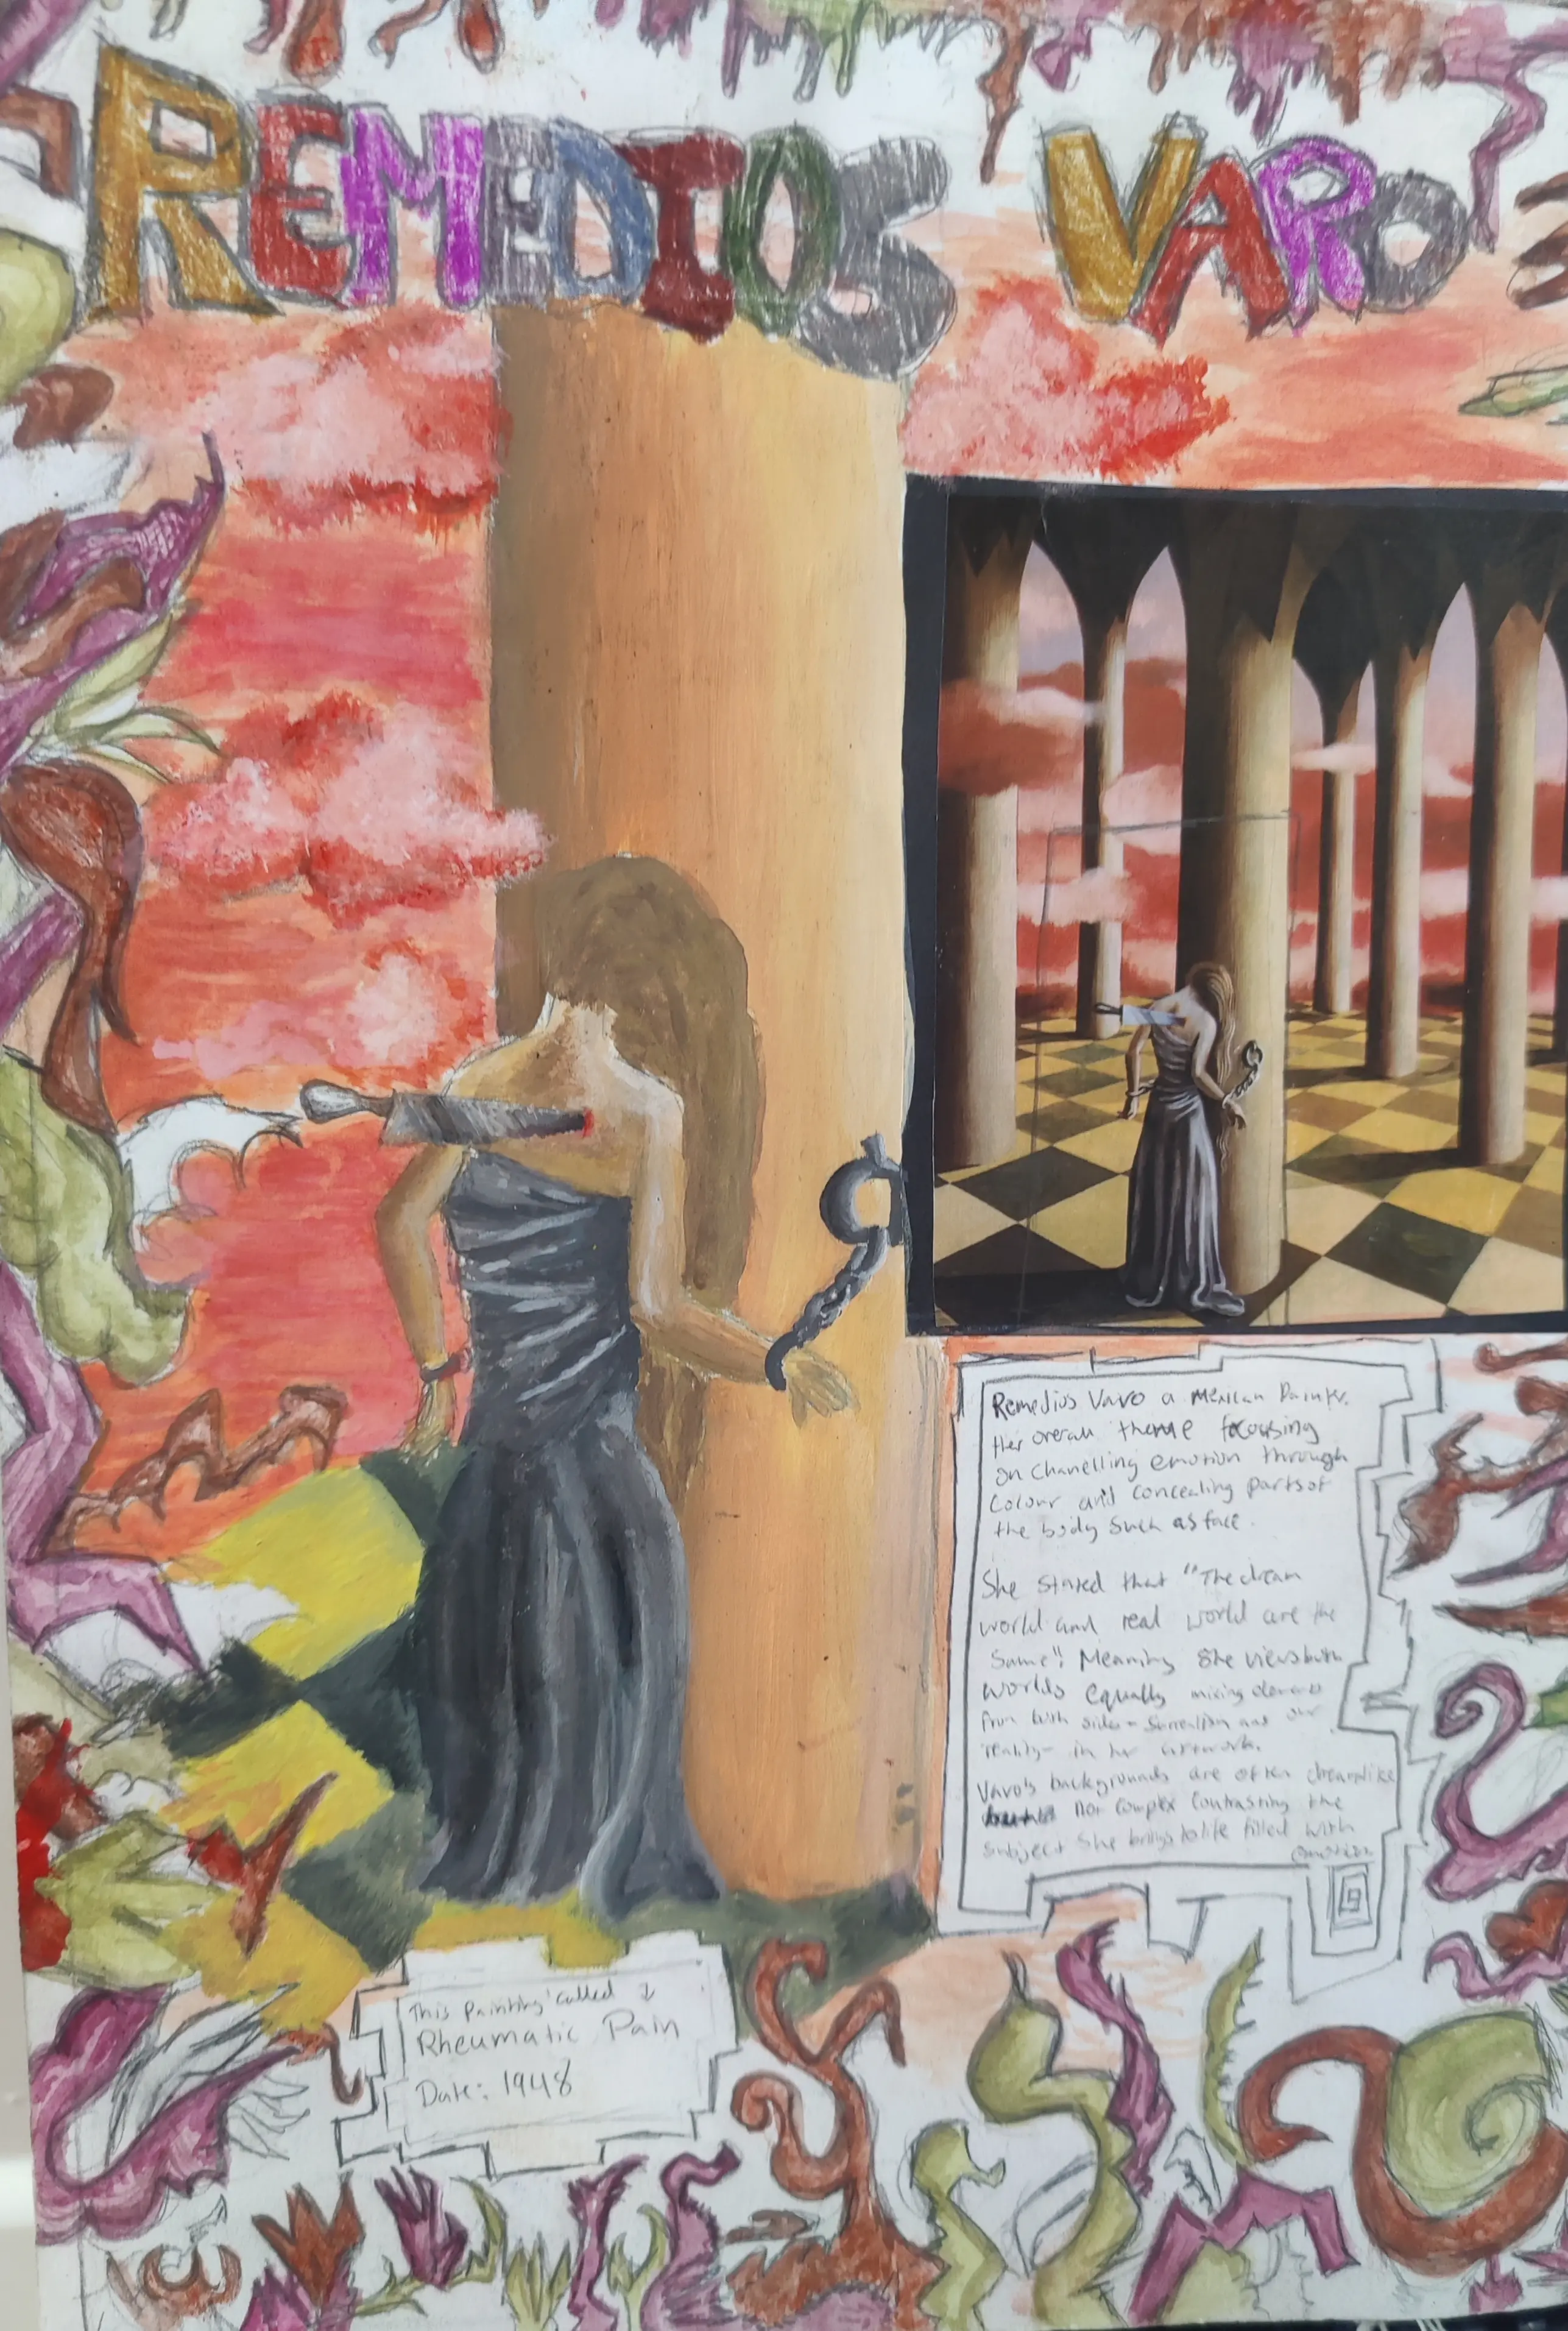 REMEDIOS VARO
Remedios Varo a Mexican Painter.
Her overall theme focusing
on chanelling emotion through
Colour and concealing parts of
the body such as face.
She stated that "The dream
world and real world are the
Same". Meaning She views both
worlds equally mixing elements
from both sides - Surrealism and our
reality - in her artwork.
Varo's backgrounds are often dreamlike
not complex contrasting the
subject she brings to life filled with
emotion
This Painting called ↓
Rheumatic Pain
Date: 1948